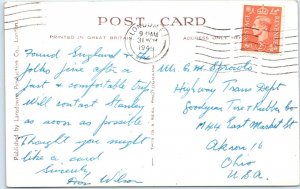 POST CARD
PRINTED IN GREAT BRITAIN
ADDRESS ONLY
LONDON
9 PM
1949
POSTAGE
REVENUE
Found England & the
folks fine after a
fast & comfortable trip.
Will contact Stanley
as soon as possible
Thought you might
like a card
Sincerely
Don Wilson
Mr. C. M.
Highway Trans Dept
Goodyear Tire & Rubber Co
1144 East Market St
Akron 16
Ohio
U.S.A.
Published by